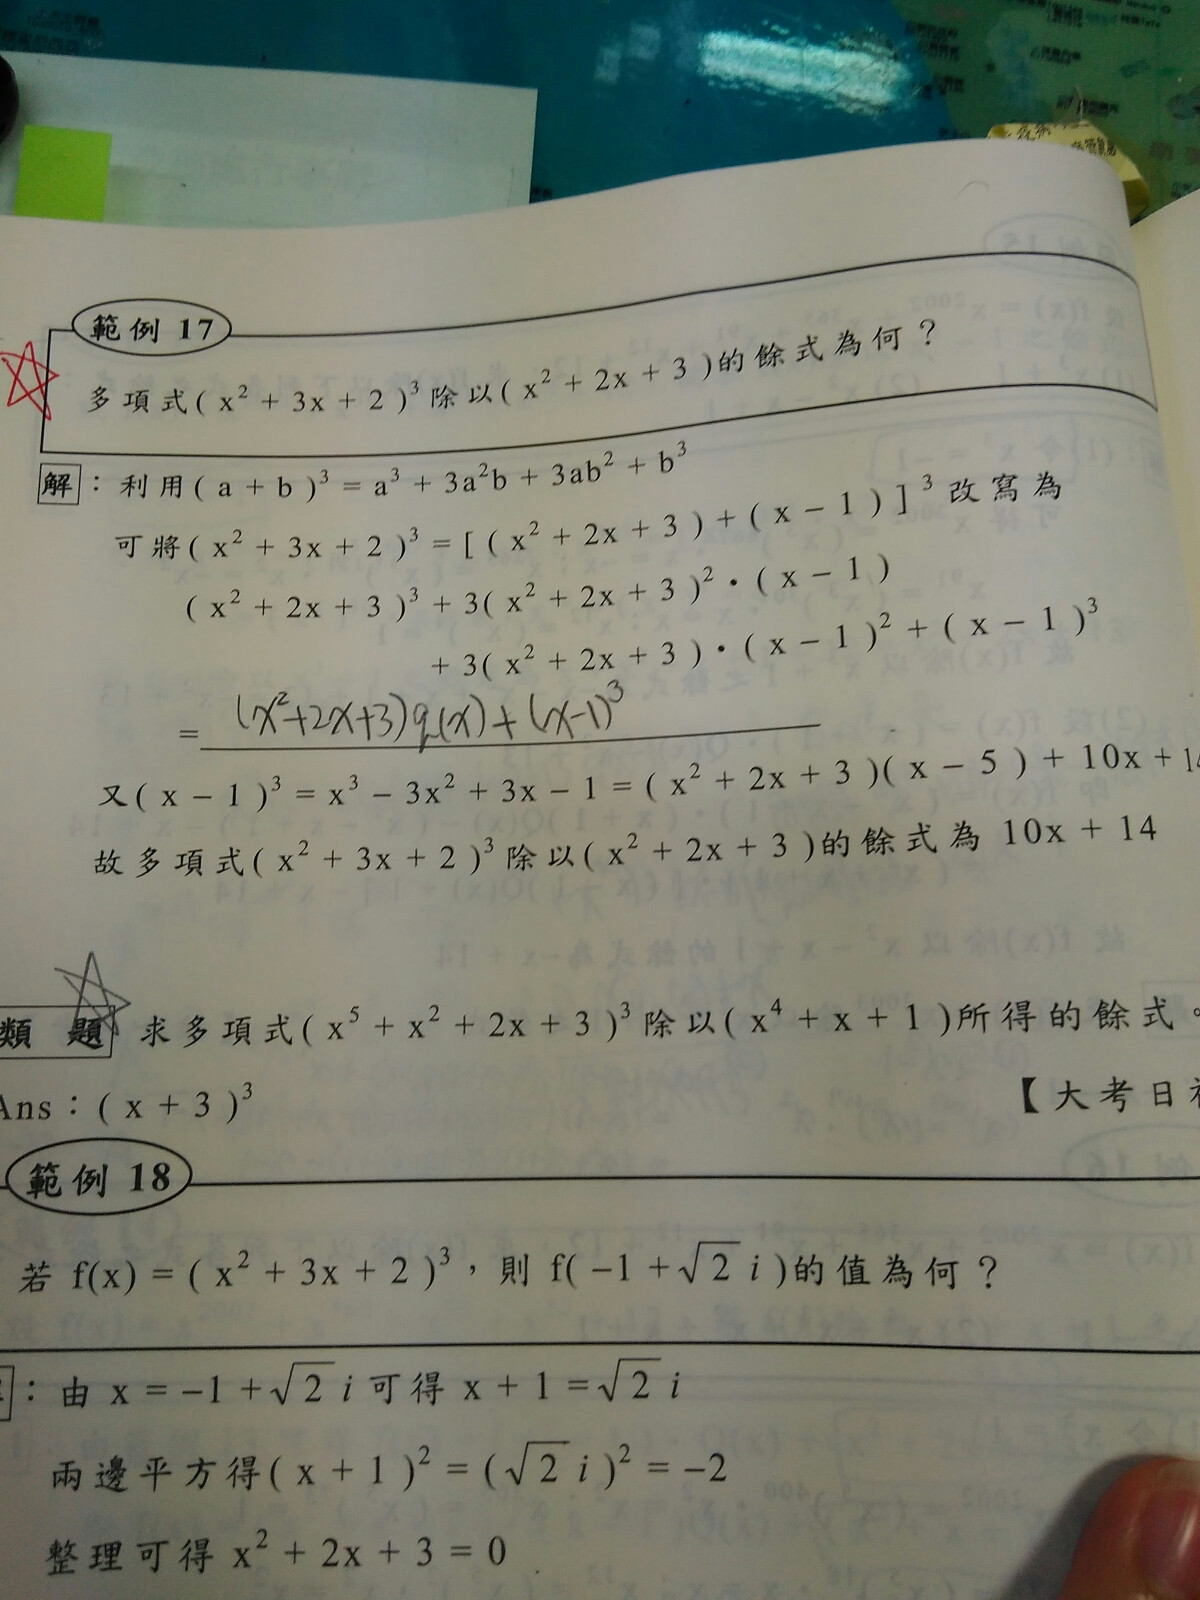 範例 17
多項式( x² + 3x + 2 )³ 除以( x² + 2x + 3 )的餘式為何？
解：利用( a + b )³ = a³ + 3a²b + 3ab² + b³
可將( x² + 3x + 2 )³ = [ ( x² + 2x + 3 ) + ( x − 1 ) ]³ 改寫為
( x² + 2x + 3 )³ + 3( x² + 2x + 3 )²·( x − 1 )
+ 3( x² + 2x + 3 )·( x − 1 )² + ( x − 1 )³
= (x²+2x+3)q(x)+(x-1)³
又( x − 1 )³ = x³ − 3x² + 3x − 1 = ( x² + 2x + 3 )( x − 5 ) + 10x + 14
故多項式( x² + 3x + 2 )³ 除以( x² + 2x + 3 )的餘式為 10x + 14
類題 求多項式( x⁵ + x² + 2x + 3 )³ 除以( x⁴ + x + 1 )所得的餘式。
Ans：( x + 3 )³
【大考日
範例 18
若 f(x) = ( x² + 3x + 2 )³，則 f( −1 + √2 i )的值為何？
：由 x = −1 + √2 i 可得 x + 1 = √2 i
兩邊平方得( x + 1 )² = ( √2 i )² = −2
整理可得 x² + 2x + 3 = 0